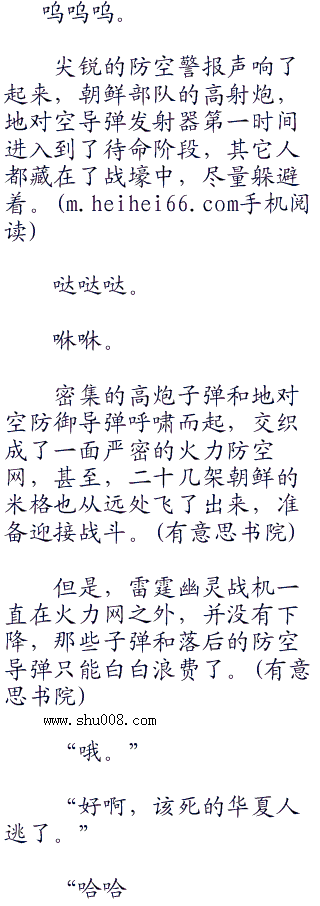 呜呜呜。
尖锐的防空警报声响了
起来，朝鲜部队的高射炮，
地对空导弹发射器第一时间
进入到了待命阶段，其它人
都藏在了战壕中，尽量躲避
着。(m.heihei66.com手机阅
读)
哒哒哒。
咻咻。
密集的高炮子弹和地对
空防御导弹呼啸而起，交织
成了一面严密的火力防空
网，甚至，二十几架朝鲜的
米格也从远处飞了出来，准
备迎接战斗。(有意思书院)
但是，雷霆幽灵战机一
直在火力网之外，并没有下
降，那些子弹和落后的防空
导弹只能白白浪费了。(有意
思书院)
www.shu008.com
“哦。”
“好啊，该死的华夏人
逃了。”
“哈哈